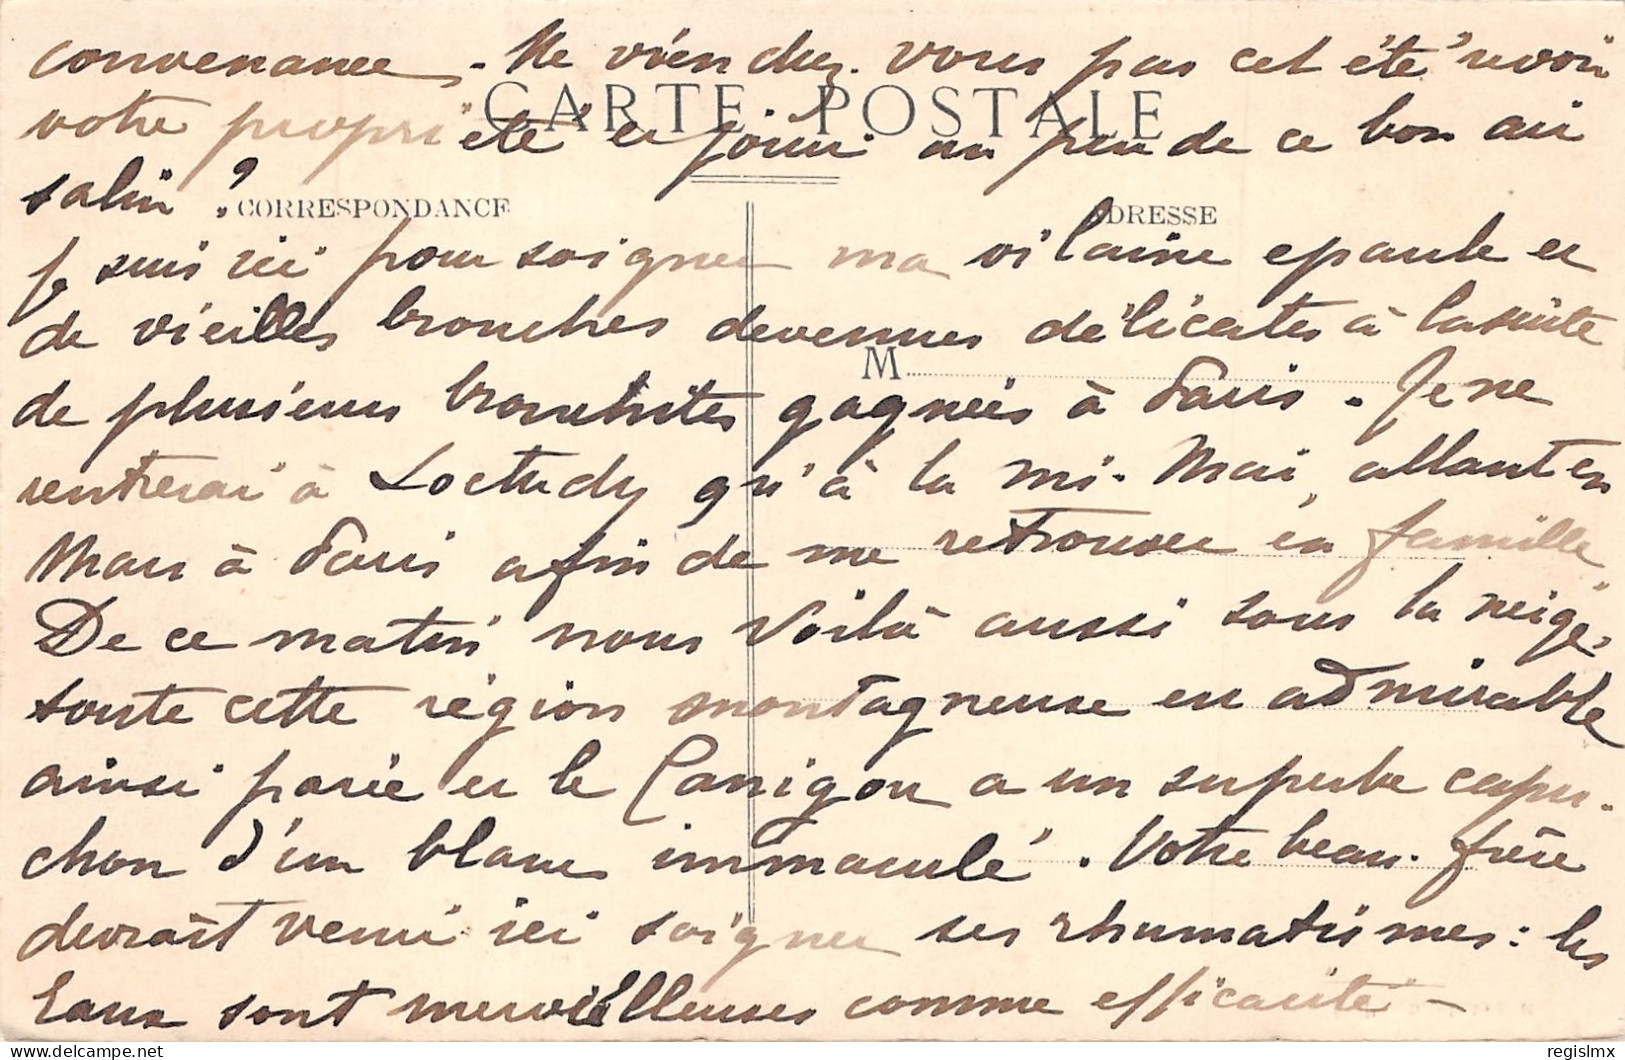 convenance. - Ne viendrez-vous pas cet été revoir
CARTE POSTALE
votre propriété et jouir un peu de ce bon air
salin ?
CORRESPONDANCE
ADRESSE
Je suis ici pour soigner ma vilaine epaule et
de vieilles bronches devenues délicates à la suite
M
de plusieurs bronchites gagnées à Paris. Je ne
rentrerai à Loctudy qu'à la mi-Mai, allant en
Mars à Paris afin de me retrouver en famille.
De ce matin nous voilà aussi sous la neige,
toute cette région montagneuse est admirable
ainsi parée et le Canigou a un superbe capu-
chon d'un blanc immaculé. Votre beau-frère
devrait venir ici soigner ses rhumatismes : les
Eaux sont merveilleuses comme efficacité -
regislmx
delcampe.net